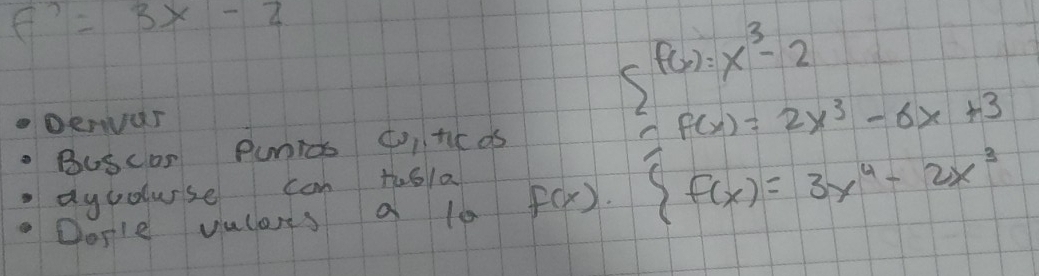 f' = 3x - 2
• Derivar
• Buscar Puntos Criticos
• ayudarse con tabla
• Darle valores a la f(x).
f(x) = x³ - 2
f(x) = 2x³ - 6x + 3
f(x) = 3x⁴ - 2x³